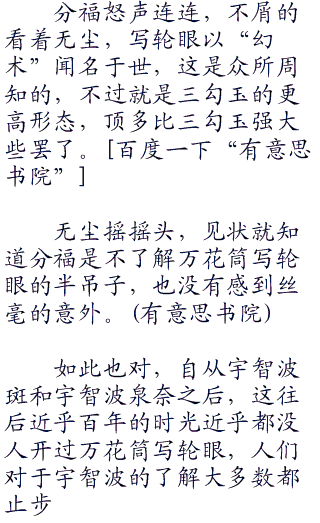 分福怒声连连，不屑的
看着无尘，写轮眼以“幻
术”闻名于世，这是众所周
知的，不过就是三勾玉的更
高形态，顶多比三勾玉强大
些罢了。[百度一下“有意思
书院”]
无尘摇摇头，见状就知
道分福是不了解万花筒写轮
眼的半吊子，也没有感到丝
毫的意外。(有意思书院)
如此也对，自从宇智波
斑和宇智波泉奈之后，这往
后近乎百年的时光近乎都没
人开过万花筒写轮眼，人们
对于宇智波的了解大多数都
止步